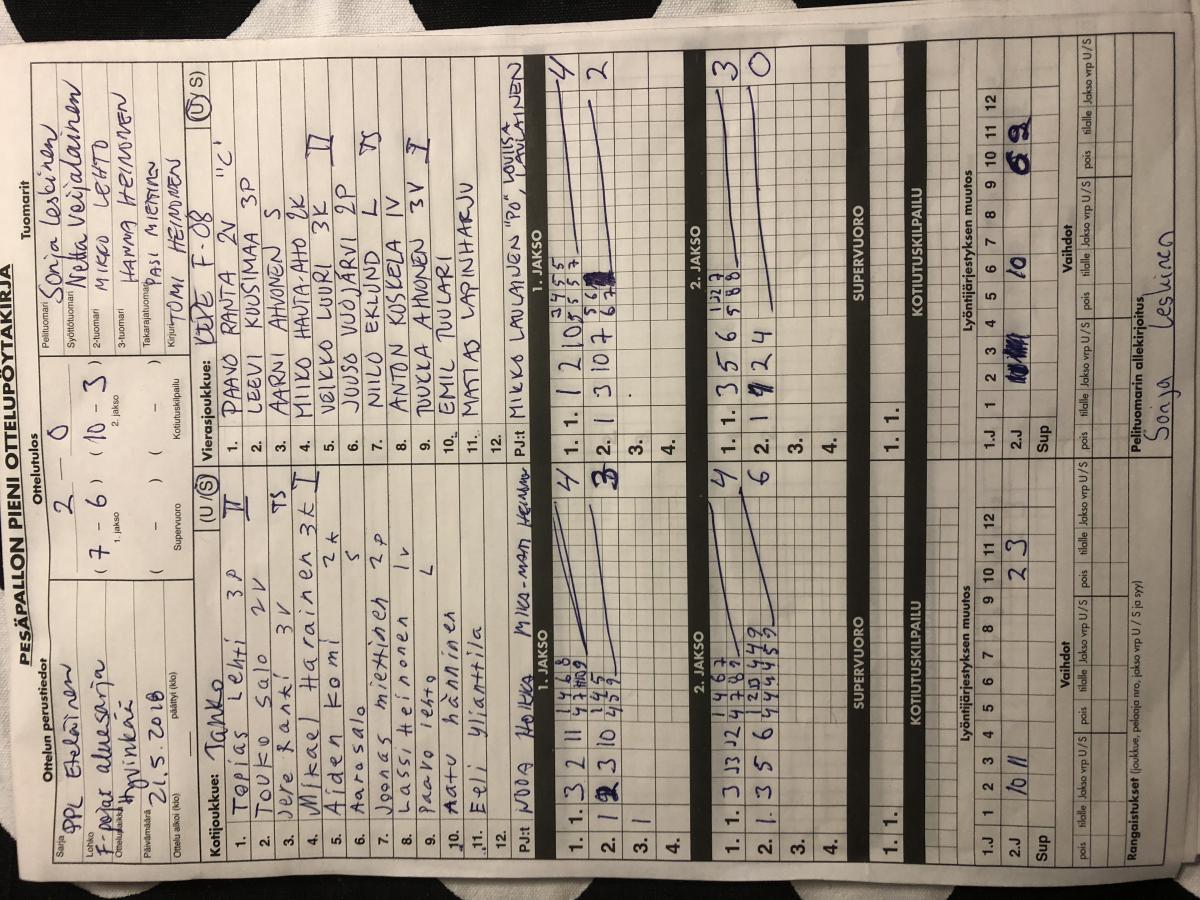 PESÄPALLON PIENI OTTELUPÖYTÄKIRJA
Ottelun perustiedot
Sarja PPL Eteläinen
Lohko F-pojat aluesarja
Ottelupaikka Hyvinkää
Päivämäärä 21.5.2018
Ottelu alkoi (klo) päättyi (klo)
Ottelutulos
2 – 0
(7 – 6) (10 – 3)
1. jakso 2. jakso
( – ) ( – )
Supervuoro Kotiutuskilpailu
Tuomarit
Pelituomari Sonja Leskinen
Syöttötuomari Netta Veijalainen
2-tuomari MIKKO LEHTO
3-tuomari HANNA HEINONEN
Takarajatuomari PASI MIETTINEN
Kirjuri TOMI HEINONEN
Kotijoukkue: Tahko (U/S)
1. Topias Lehti 3P II
2. Touko Salo 2V
3. Jere Rantti 3V TS
4. Mikael Harainen 3K I
5. Aiden Komi 2K
6. Aarosalo S
7. Joonas miettinen 2P
8. Lassi Heinonen 1V
9. Paavo lehto L
10. Aatu hänninen
11. Eeli Yliantila
12.
PJ:t NOOA HOLKKA MIKA-MATTI HEINONEN
Vierasjoukkue: KEPE F-08 (U/S)
1. PAAVO RANTA 2V "C"
2. LEEVI KUUSIMAA 3P
3. AARNI AHVONEN S
4. MIIKO HAUTA-AHO 2K
5. VEIKKO LUURI 3K II
6. JUUSO VUOJÄRVI 2P
7. NIILO EKLUND L TS
8. ANTON KOSKELA 1V
9. TUKKA AHVONEN 3V I
10. EMIL TUULARI
11. MATIAS LAPINHARJU
12.
PJ:t MIKKO LAULAINEN "PÖ", LOVIISA LAULAINEN
1. JAKSO
1. 1. 3 2 11 4
2. 1 2 3 10 3
3. 1
4.
1. JAKSO
1. 1. 1 2 10 4
2. 1 3 10 7 2
3.
4.
2. JAKSO
1. 1. 3 4
2. 1. 3 5 6 6
3.
4.
2. JAKSO
1. 1. 3 5 6 3
2. 1 2 4 0
3.
4.
SUPERVUORO
1. 1.
SUPERVUORO
1. 1.
KOTIUTUSKILPAILU
KOTIUTUSKILPAILU
Lyöntijärjestyksen muutos
1 2 3 4 5 6 7 8 9 10 11 12
1.J
2.J 10 11 2 3
Sup
Lyöntijärjestyksen muutos
1 2 3 4 5 6 7 8 9 10 11 12
1.J
2.J 10
Sup
Vaihdot
pois tilalle Jakso vrp U/S pois tilalle Jakso vrp U/S pois tilalle Jakso vrp U/S
Vaihdot
pois tilalle Jakso vrp U/S pois tilalle Jakso vrp U/S pois tilalle Jakso vrp U/S
Rangaistukset (joukkue, pelaaja nro, jakso vrp U / S ja syy)
Pelituomarin allekirjoitus
Sonja Leskinen